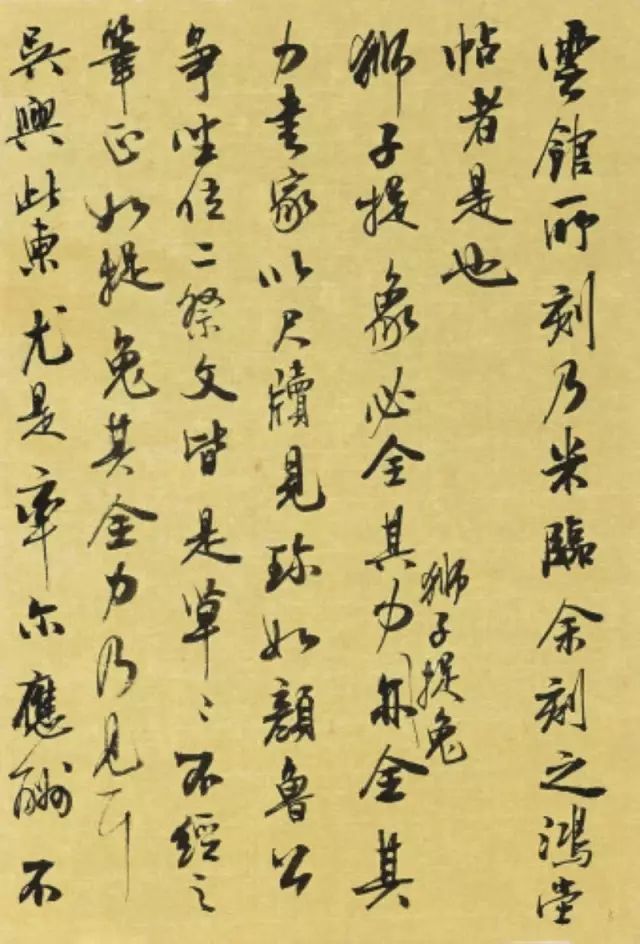 雲館所刻乃米臨余刻之鴻堂
帖者是也
獅子捉象必全其力獅子捉兔亦全其
力書家以尺牘見珍如顏魯公
爭坐位二祭文皆是草〻不經之
筆正如捉兔其全力乃見耳
吳興此柬尤是率尔應酬不